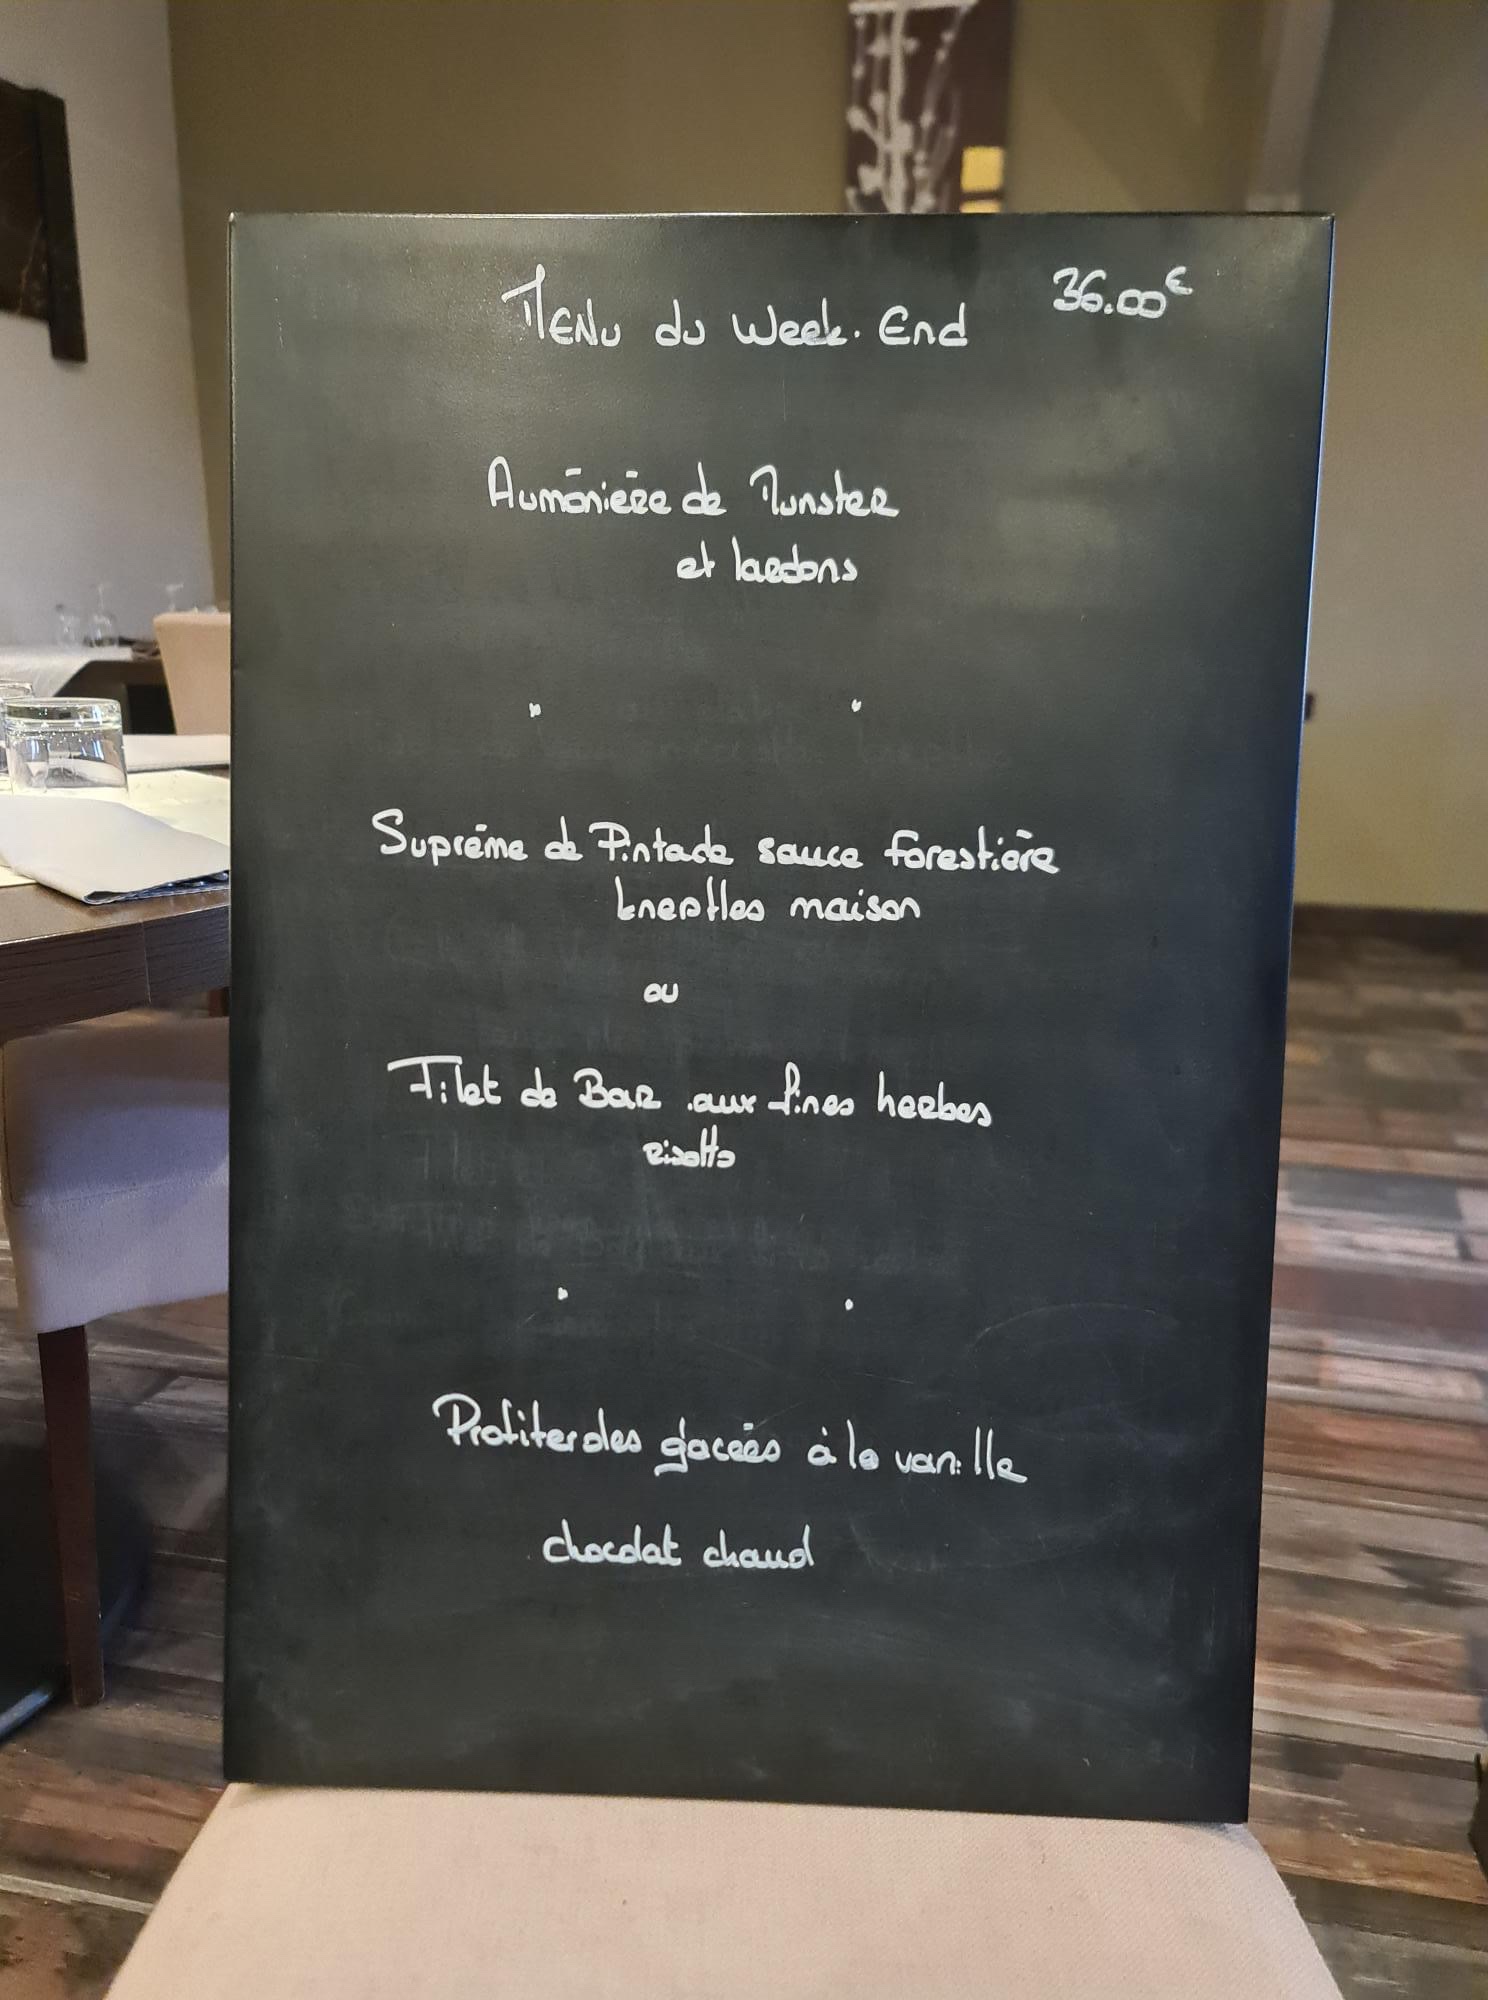 Menu du Week-End 36.00€
Aumônière de Munster
et lardons
Suprême de Pintade sauce forestière
knepfles maison
ou
Filet de Bar aux fines herbes
risotto
Profiteroles glacées à la vanille
chocolat chaud